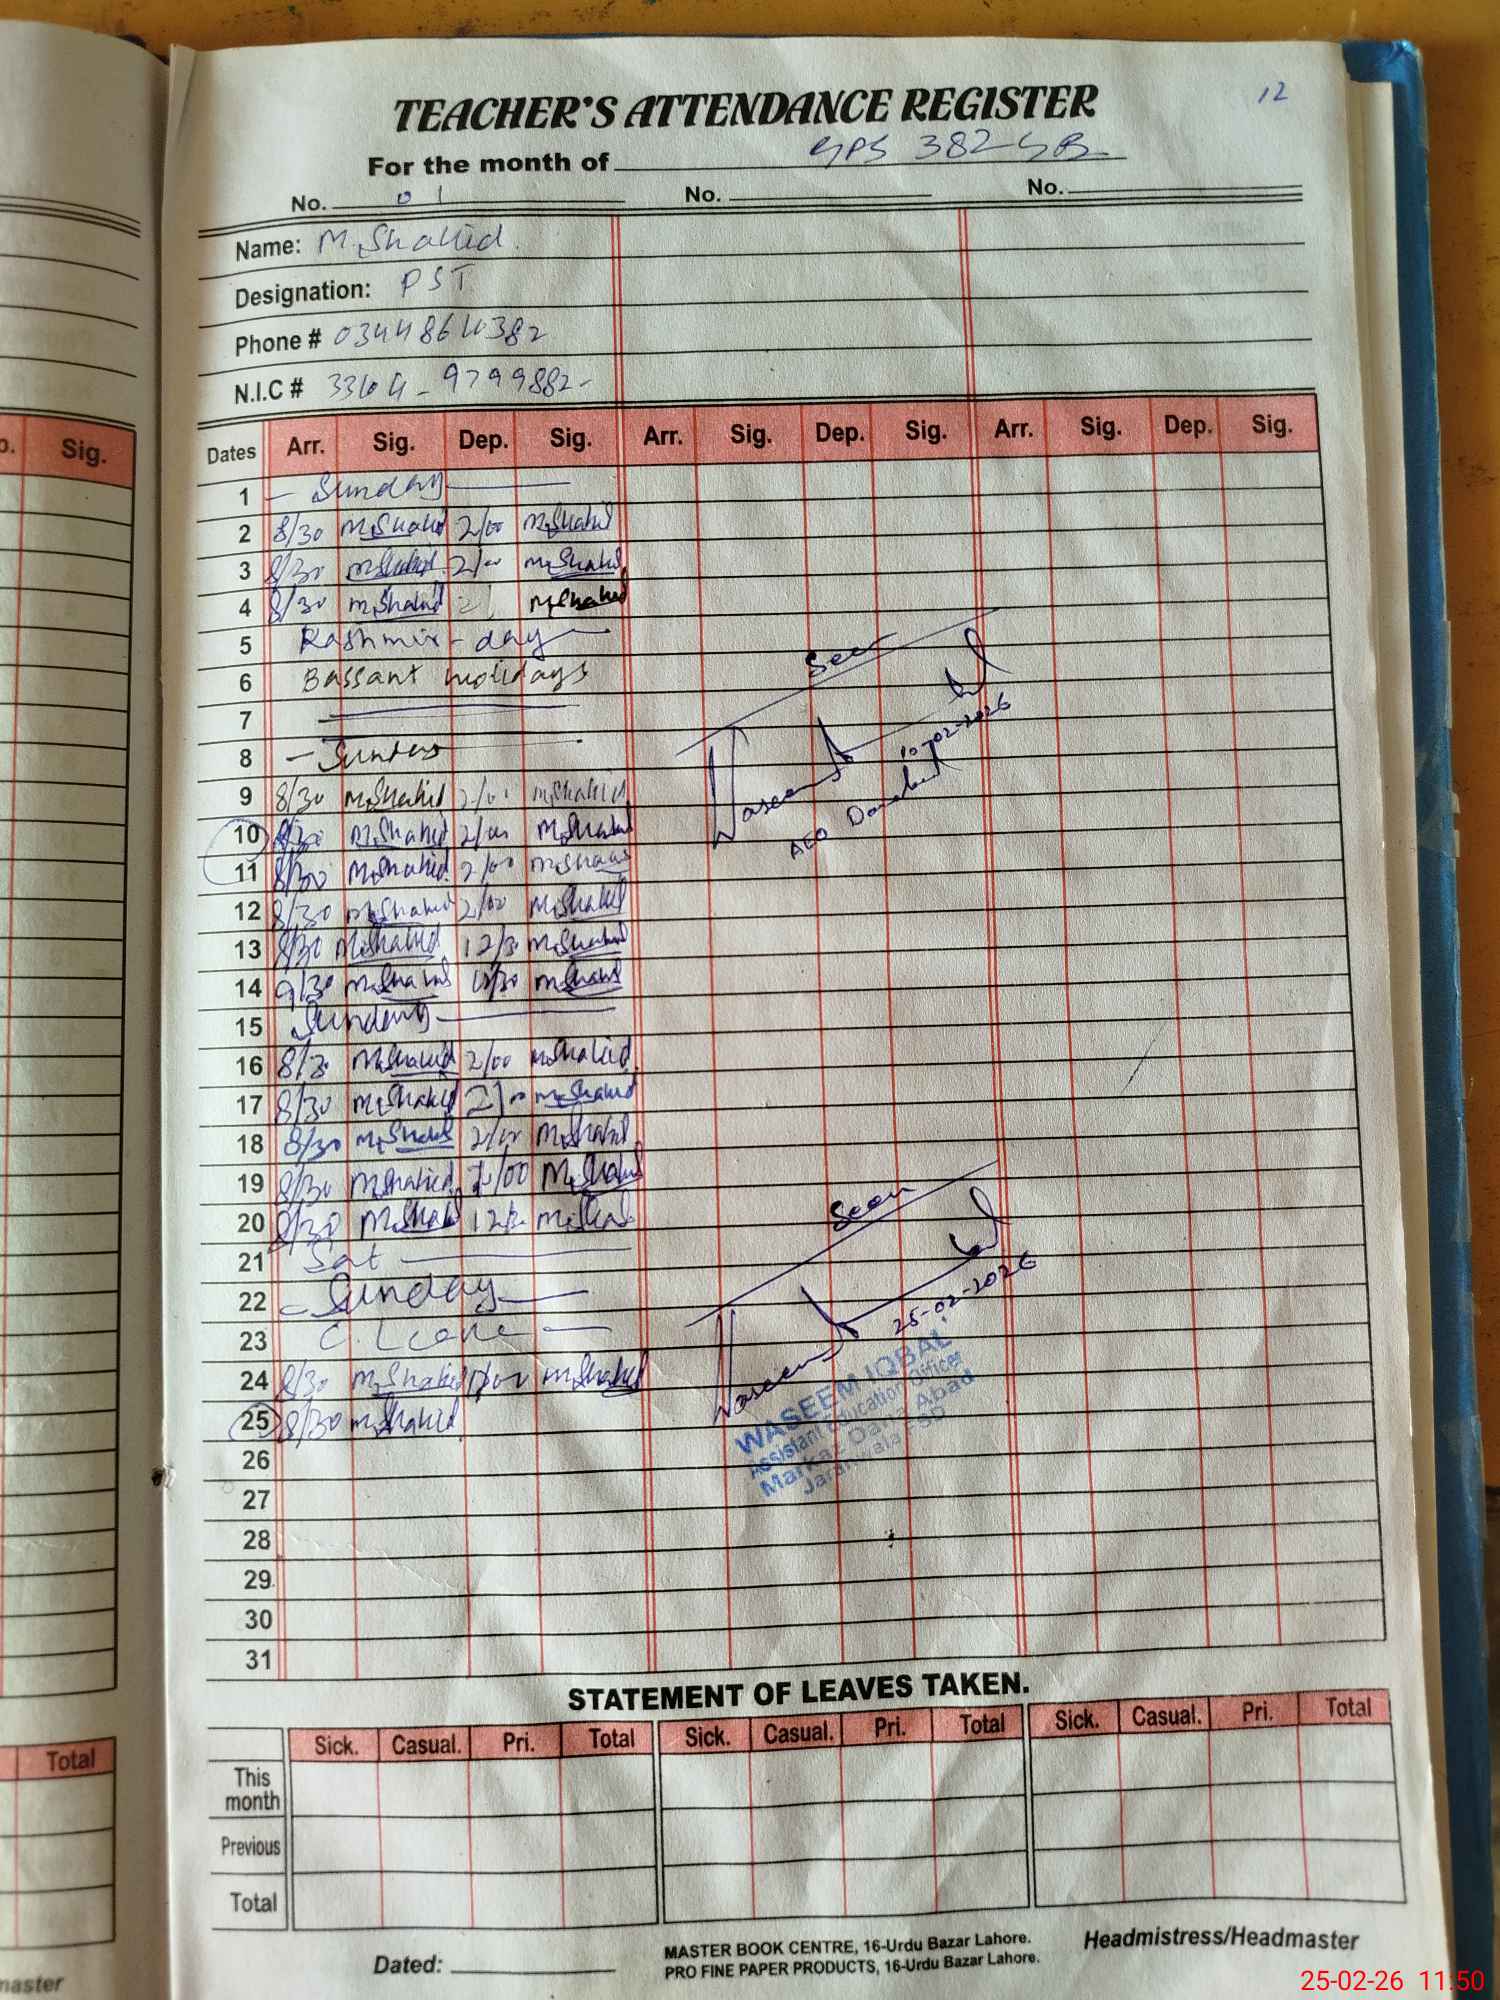 12
TEACHER'S ATTENDANCE REGISTER
For the month of GPS 382 GB
No. 01 No. No.
Name: M. Shahid.
Designation: PST
Phone # 03448640382
N.I.C # 33104-9799882-
p. Sig.
Dates Arr. Sig. Dep. Sig. Arr. Sig. Dep. Sig. Arr. Sig. Dep. Sig.
1 Sunday
2 8/30 M.Shahid 2/00 M.Shahid
3 8/30 M.Shahid 2/00 M.Shahid
4 8/30 M.Shahid 2/ M.Shahid
5 Kashmir-day
6 Bassant Holidays
7
8 Sunday
9 8/30 M.Shahid 2/00 M.Shahid
10 8/30 M.Shahid 2/00 M.Shahid
11 8/30 M.Shahid 2/00 M.Shahid
12 8/30 M.Shahid 2/00 M.Shahid
13 8/30 M.Shahid 12/30 M.Shahid
14 9/30 M.Shahid M.Shahid
15 Sunday
16 8/30 M.Shahid 2/00 M.Shahid
17 8/30 M.Shahid 2/00 M.Shahid
18 8/30 M.Shahid 2/00 M.Shahid
19 8/30 M.Shahid 2/00 M.Shahid
20 8/30 M.Shahid 12/30 M.Shahid
21 Sat
22 Sunday
23 C. Leave
24 8/30 M.Shahid M.Shahid
25 8/30 M.Shahid
26
27
28
29
30
31
Seen
Waseem
10-02-2026
AEO Danabad
Seen
Waseem
25-02-2026
WASEEM IQBAL
Assistant Education Officer
Markaz Dana Abad
Jaranwala FSD
STATEMENT OF LEAVES TAKEN.
Total
Sick. Casual. Pri. Total Sick. Casual. Pri. Total Sick. Casual. Pri. Total
This month
Previous
Total
Dated:
MASTER BOOK CENTRE, 16-Urdu Bazar Lahore.
PRO FINE PAPER PRODUCTS, 16-Urdu Bazar Lahore.
Headmistress/Headmaster
master
25-02-26 11:50